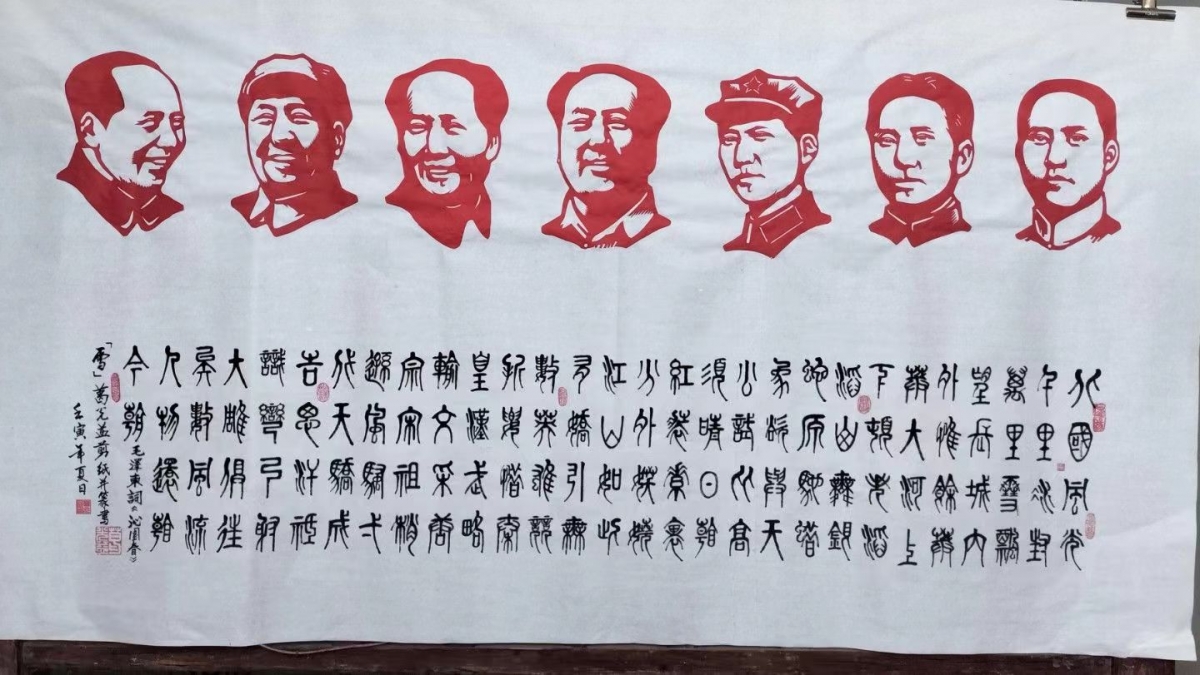 北國風光
千里冰封
萬里雪飄
望長城內
外惟餘莽
莽大河上
下頓失滔
滔山舞銀
蛇原馳蠟
象欲與天
公試比高
須晴日看
紅裝素裹
分外妖嬈
江山如此
多嬌引無
數英雄競
折腰惜秦
皇漢武略
輸文采唐
宗宋祖稍
遜風騷弌
代天驕成
吉思汗祇
識彎弓射
大雕俱往
矣數風流
人物還看
今朝
毛澤東詞《沁園春》
「雪」葛光益剪紙并篆書
壬寅年夏日